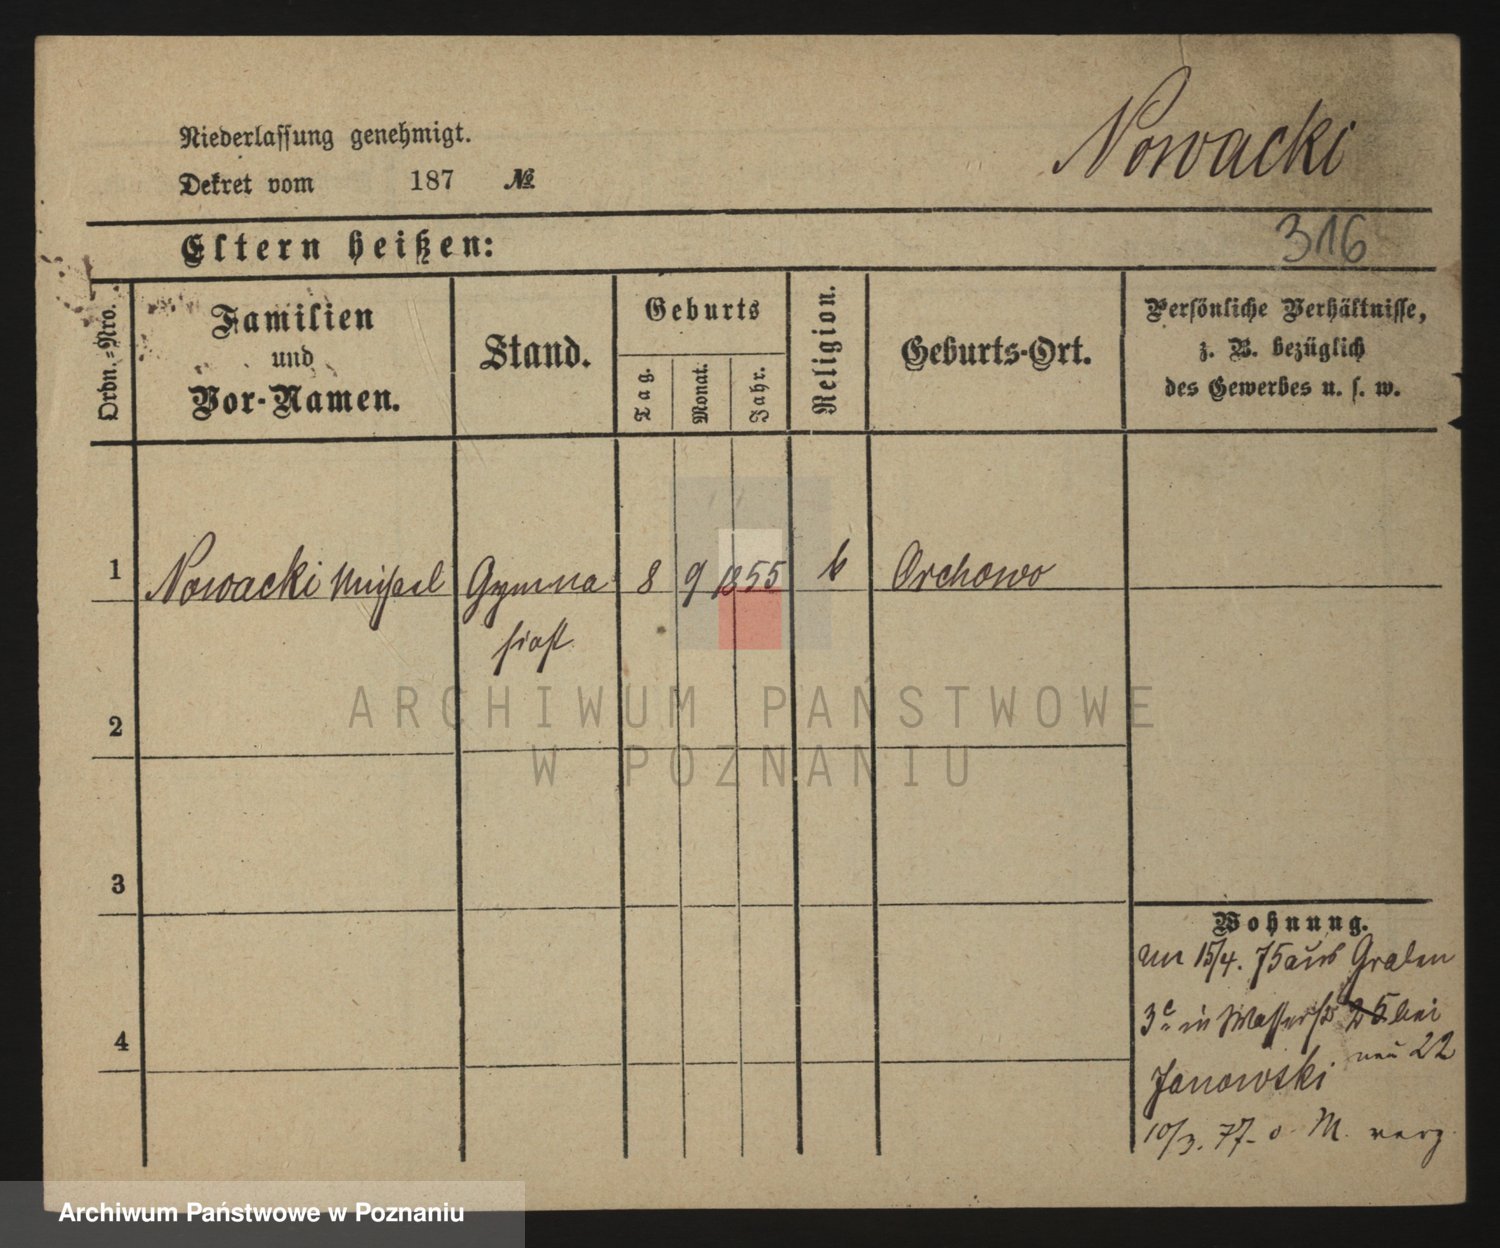 Niederlassung genehmigt.
Nowacki
Dekret vom 187 №
316
Eltern heißen:
Ordn.-Nro.
Familien
und
Vor-Namen.
Stand.
Geburts
Tag.
Monat.
Jahr.
Religion.
Geburts-Ort.
Persönliche Verhältnisse,
z. B. bezüglich
des Gewerbes u. s. w.
1 Nowacki Michael Gymna 8 9 1855 k Orchowo
siast
ARCHIWUM PAŃSTWOWE
W POZNANIU
2
3
4
Wohnung.
15/4. 75 aus Graben
3 in Wasserstr 25 bei
neu 22
Janowski
10/3. 77. o. M. verz
Archiwum Państwowe w Poznaniu